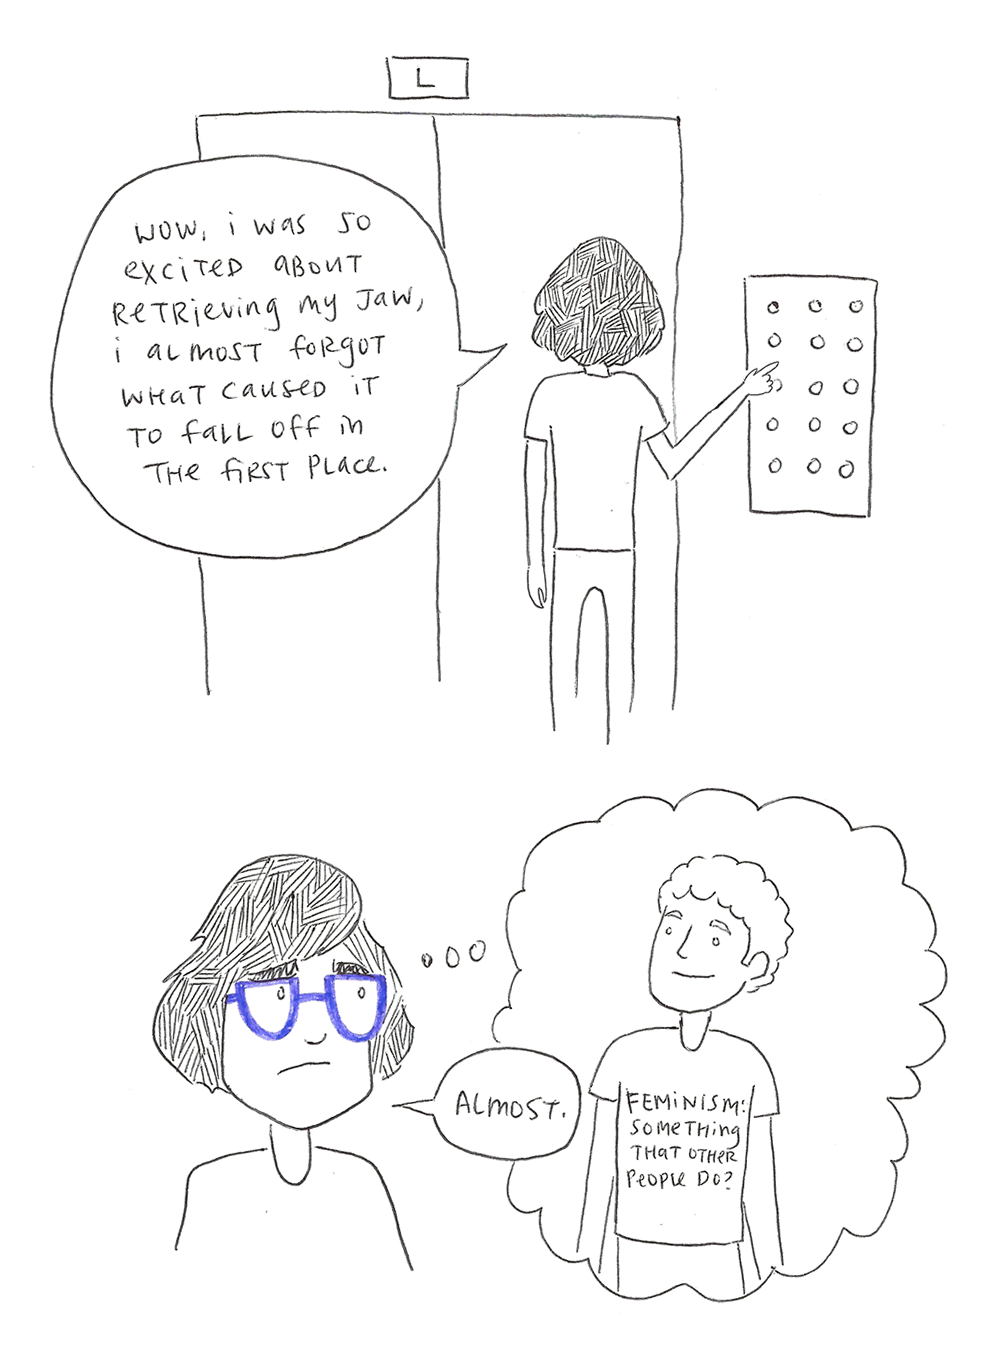 L
WOW, i WAS SO
EXCiTED ABOUT
RETRiEViNG MY JAW,
i ALMOST FORGOT
WHAT CAUSED iT
TO FALL OFF iN
THE FiRST PLACE.
ALMOST.
FEMiNiSM:
SOMETHiNG
THAT OTHER
PEOPLE DO?